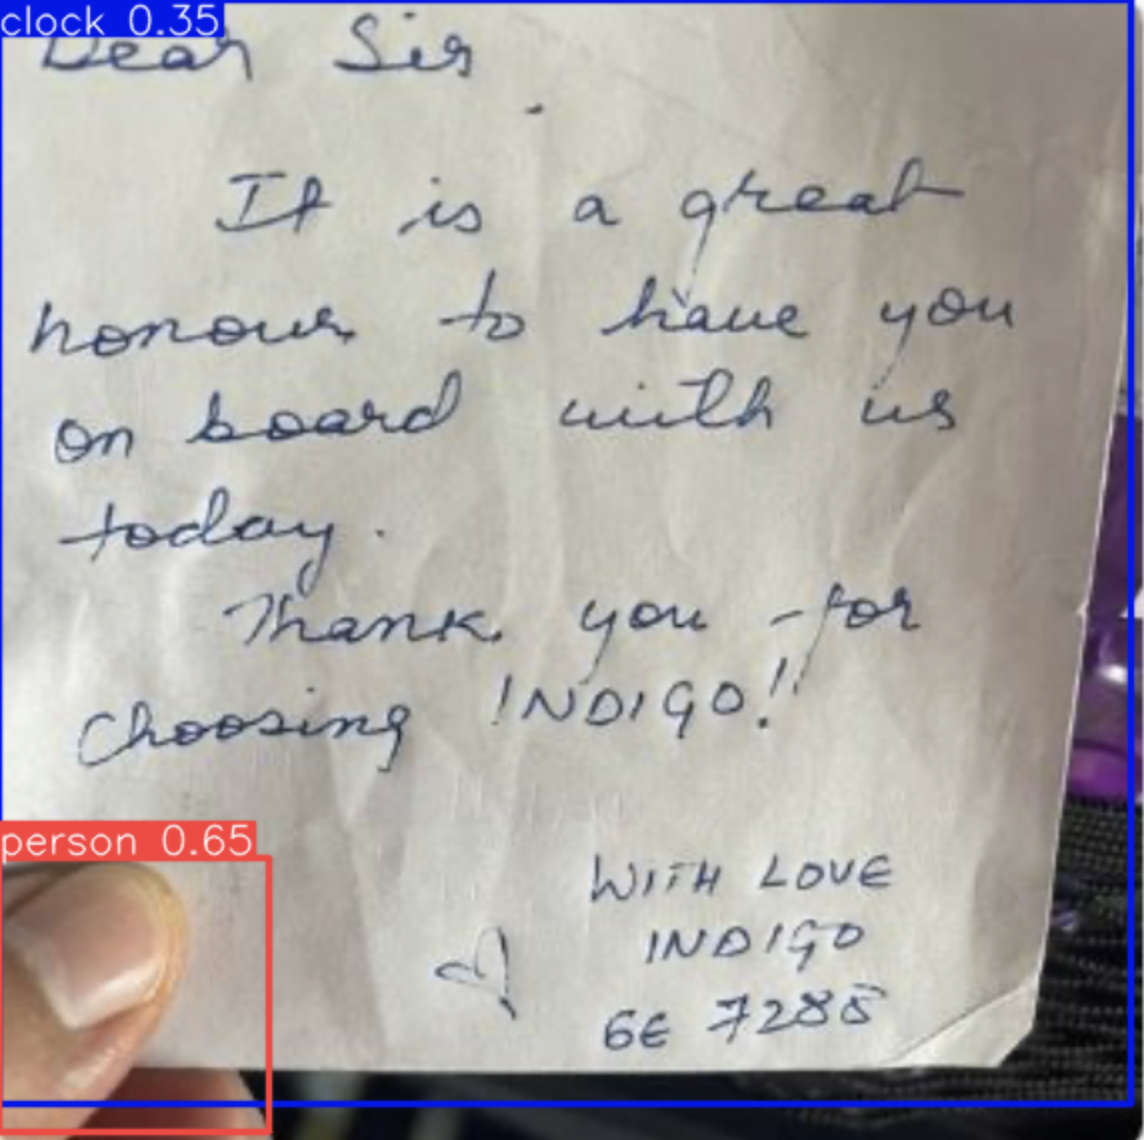 clock 0.35
Dear Sir
It is a great
honour to have you
on board with us
today.
Thank you for
choosing INDIGO!!
person 0.65
WITH LOVE
INDIGO
6E 7288